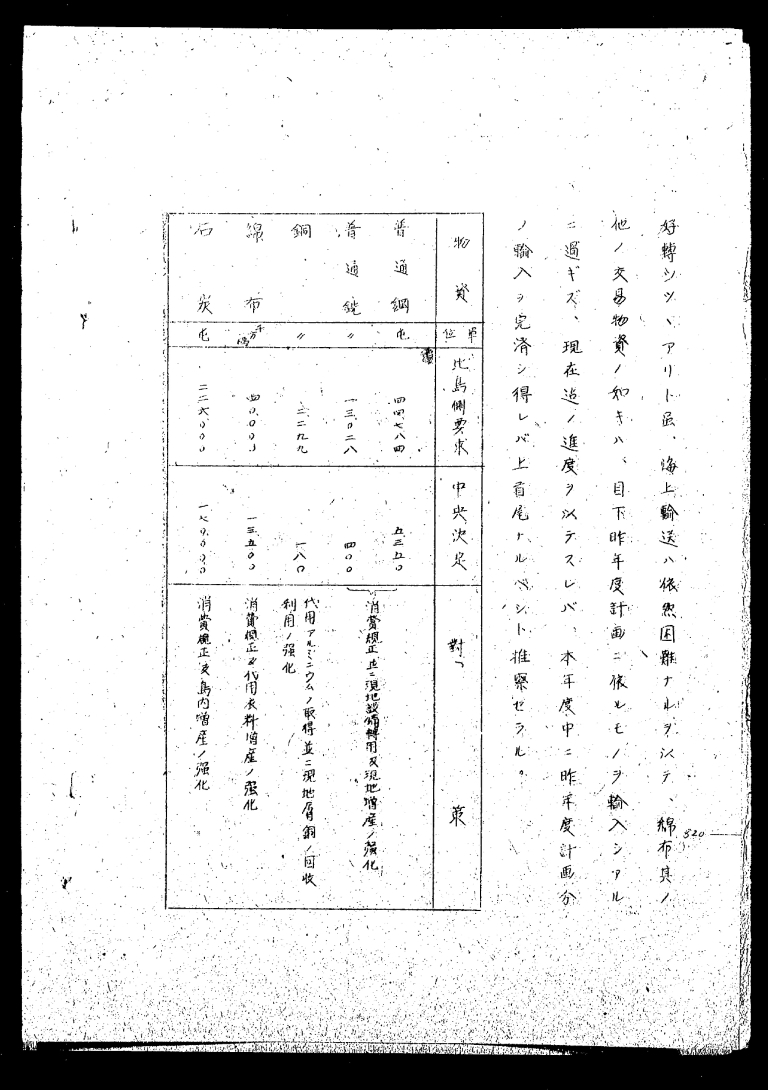 好轉シツヽアリト雖、海上輸送ハ依然困難ナルヲ以テ、綿布其ノ
他ノ交易物資ノ如キハ、目下昨年度計画ニ依ルモノヲ輸入シアル
ニ過ギズ、現在迄ノ進度ヲ以テスレバ 本年度中ニ昨年度計画分
ノ輸入ヲ完済シ得レバ上首尾ナルベシト推察セラル。
物資 單位 比島側要求 中央決定 對策
普通鋼 屯 四四七八四 五三五〇
普通銑 〃 一三〇二八 四〇〇
消費規正並ニ現地設備轉用及現地増産ノ強化
銅 〃 二二九九 一八〇 代用アルミニウムノ取得並ニ現地屑銅ノ回收
利用ノ強化
綿布 千方碼 四〇〇〇〇 一三五〇〇 消費規正及代用衣料増産ノ強化
石炭 屯 二二六〇〇〇 一七〇〇〇〇 消費規正及島内増産ノ強化
520